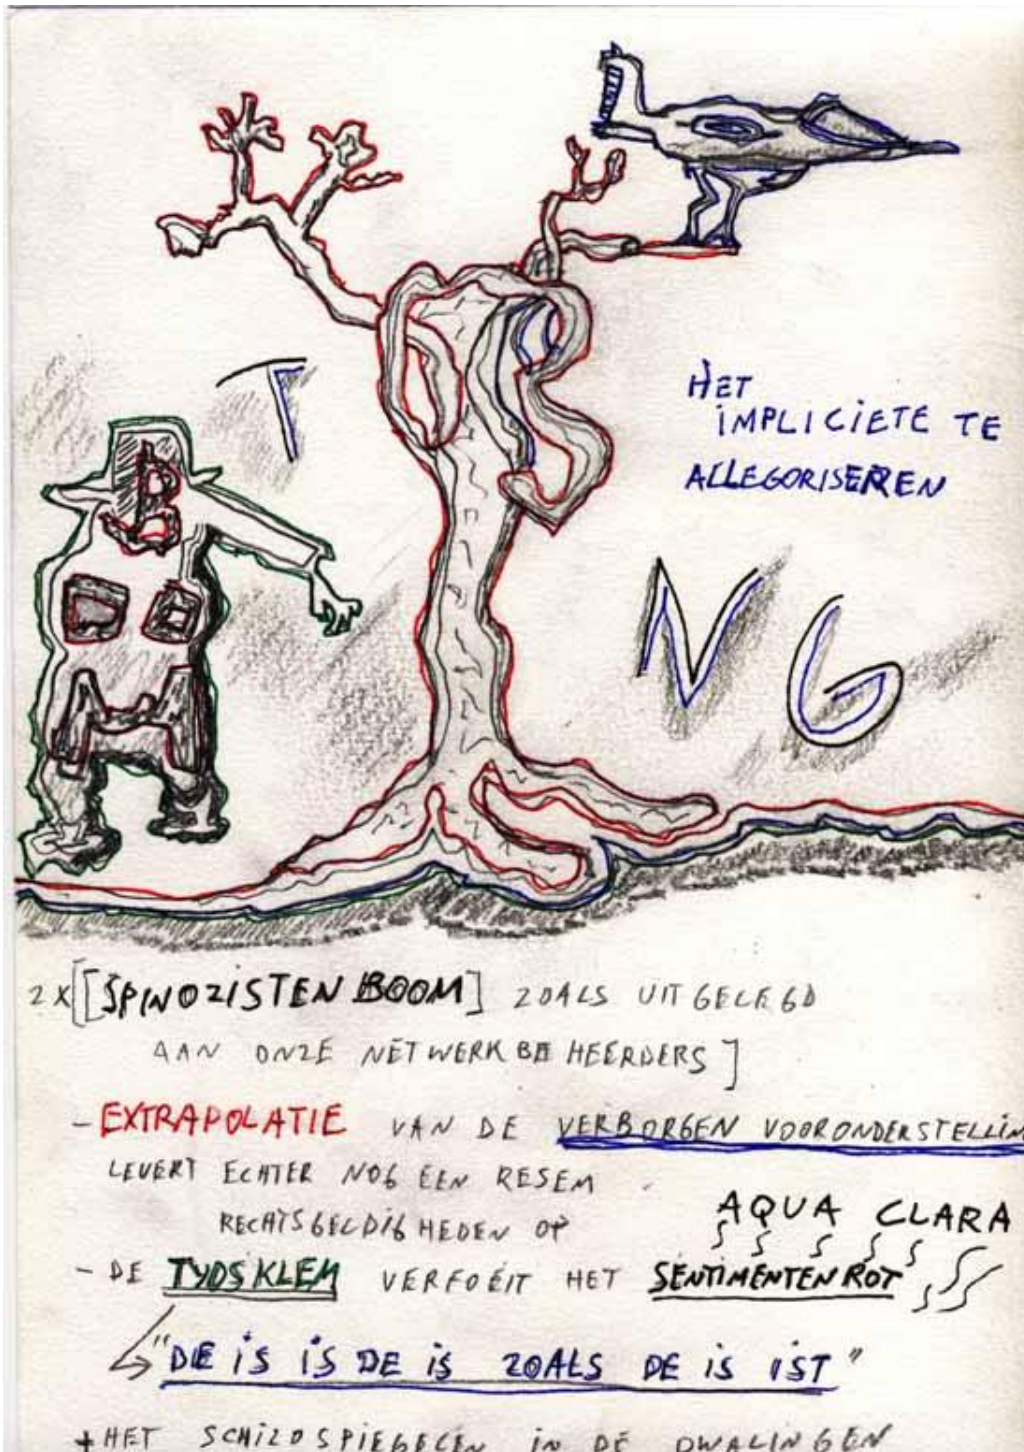 T
HET
IMPLICIETE TE
ALLEGORISEREN
N G
2X[[SPINOZISTEN BOOM] ZOALS UITGELEGD
AAN ONZE NETWERKBEHEERDERS]
- EXTRAPOLATIE VAN DE VERBORGEN VOORONDERSTELLIN
LEVERT ECHTER NOG EEN RESEM
RECHTSGELDIGHEDEN OP
AQUA CLARA
- DE TYDSKLEM VERFOEIT HET SENTIMENTENROT
"DE IS IS DE IS ZOALS DE IS IST"
+ HET SCHILDSPIEGELEN IN DE DWALINGEN